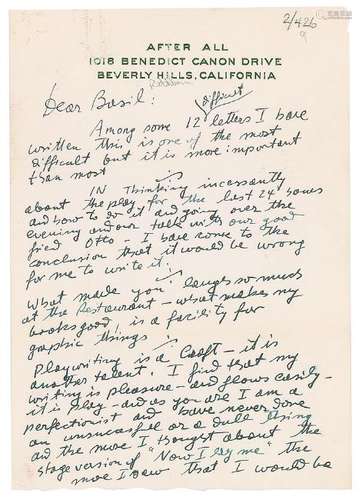 2/426
AFTER ALL
1018 BENEDICT CANON DRIVE
BEVERLY HILLS, CALIFORNIA
Dear Basil:
difficult
Among some 12 letters I have
written this is one of the most
difficult but it is more important
than most
IN Thinking incessantly
about the play for the last 24 hours
and how to do it and going over the
evening and our talks with our good
fried Otto - I have come to the
conclusion that it would be wrong
for me to write it.
What made you laugh so much
at the Restaurant - what makes my
books good, is a facility for
graphic things
Playwriting is a Craft - it is
another talent. I find that my
writing is pleasure - and flows easily -
it is play - and as you are I am a
perfectionist and have never done
an unsuccesful or a dull thing
and the more I thought about the
stage version of "Now I lay me" the
more I saw that I would be